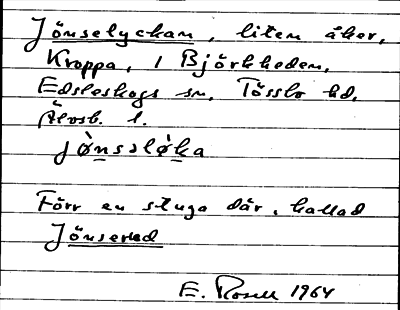 Jönselyckan, liten åker,
Kroppa, 1 Björkheden,
Edsleskogs sn, Tössbo hd,
Älvsb. l.
jø̀nsslø̀ka
Förr en stuga där, kallad
Jönsered
E. Rosell 1964